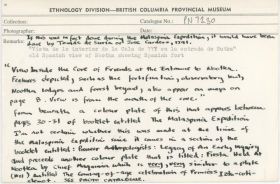 ETHNOLOGY DIVISION—BRITISH COLUMBIA PROVINCIAL MUSEUM
Collection: Catalogue No.: PN 7230
Photographer: Date:
Remarks: If this was in fact done during the Malaspina Expedition, it would have been
done by Tomás de Suría or José Cardero, 1791.
"Vista de lo interior de la Cala de en la entrada de Nutka"
old Spanish view of Nootka showing Spanish fort
"View inside the Cove of Friends at the Entrance to Nootka.
Features depicted, such as the fortification, observatory hut,
Nootka lodges and forest beyond, also appear on maps
p. View is from the mouth of the cove."
from beneath a colour plate of this that appears between
pages 30-31 of booklet entitled The Malaspina Expedition
I'm not certain whether this was made at the time of
the Malaspina expedition since it comes in a section of the
booklet entitled: Pioneer Anthropologists: Legacy of An Early Inquiry
and precedes another colour plate that is titled: Fiesta Held at
Nootka by Chief Maquinna which is very very similar to a plate
entitled The coming-of-age celebration of Princess
SEE PHOTO CATALOGUE.